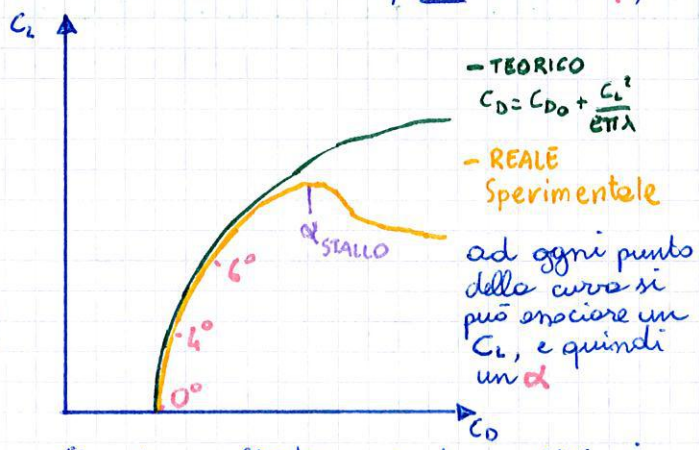 C_L
- TEORICO
C_D = C_D0 + C_L² / eπλ
- REALE
Sperimentale
α STALLO
ad ogni punto
della curva si
può associare un
C_L, e quindi
un α
6°
4°
0°
C_D